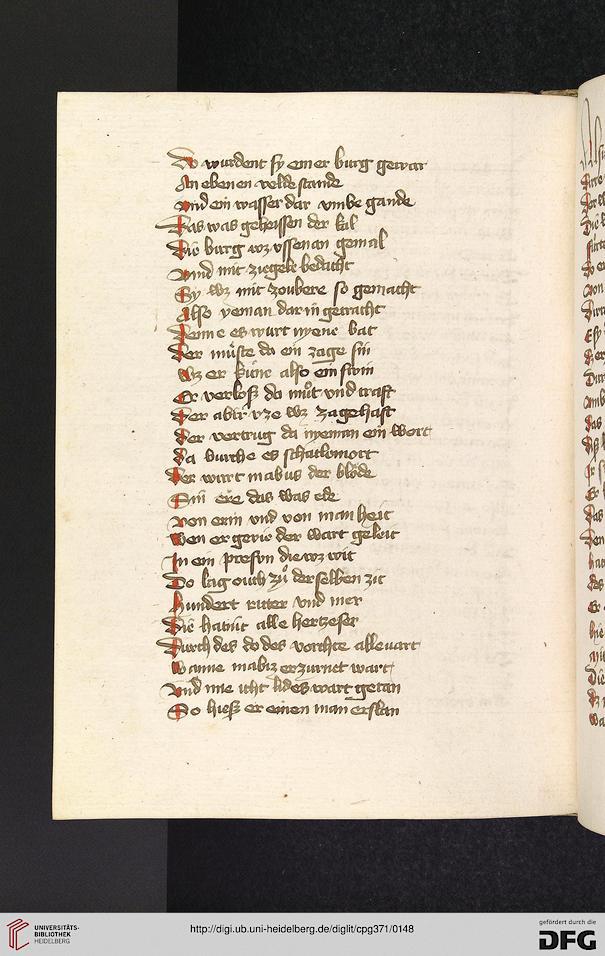 Do wurdent sy einer burg gewar
An ebenen velde stande
vnd ein wasser dar vmbe gande
Das was geheissen der kal
Die burg wz vssenan gemal
vnd mit ziegele bedacht
Sy wz mit zoubere so gemacht
Also yeman dar in getracht
Denne es wurt nyene bat
Der müste do ein zage sin
Wz er küne also ein swin
Er verlosz do můt vnd craft
Der abir vze wz zagehaft
Der vertrug da nyeman ein wort
Da burthe es schatlomort
Der wirt mabus der blöde
Sin ere das was ede
von erin vnd von manheit
Wen er gevie der wart geleit
In ein presvn die wz wit
Do lag ouch zů der selben zit
hundert ritter vnd mer
Die hatnt alle hertzeser
Durch des dodes vorchte alle vart
Wanne mabuz erzurnet wart
vnd nie icht lides wart getan
So hiesz er einen man erslan
UNIVERSITÄTS-
BIBLIOTHEK
HEIDELBERG
http://digi.ub.uni-heidelberg.de/diglit/cpg371/0148
gefördert durch die
DFG